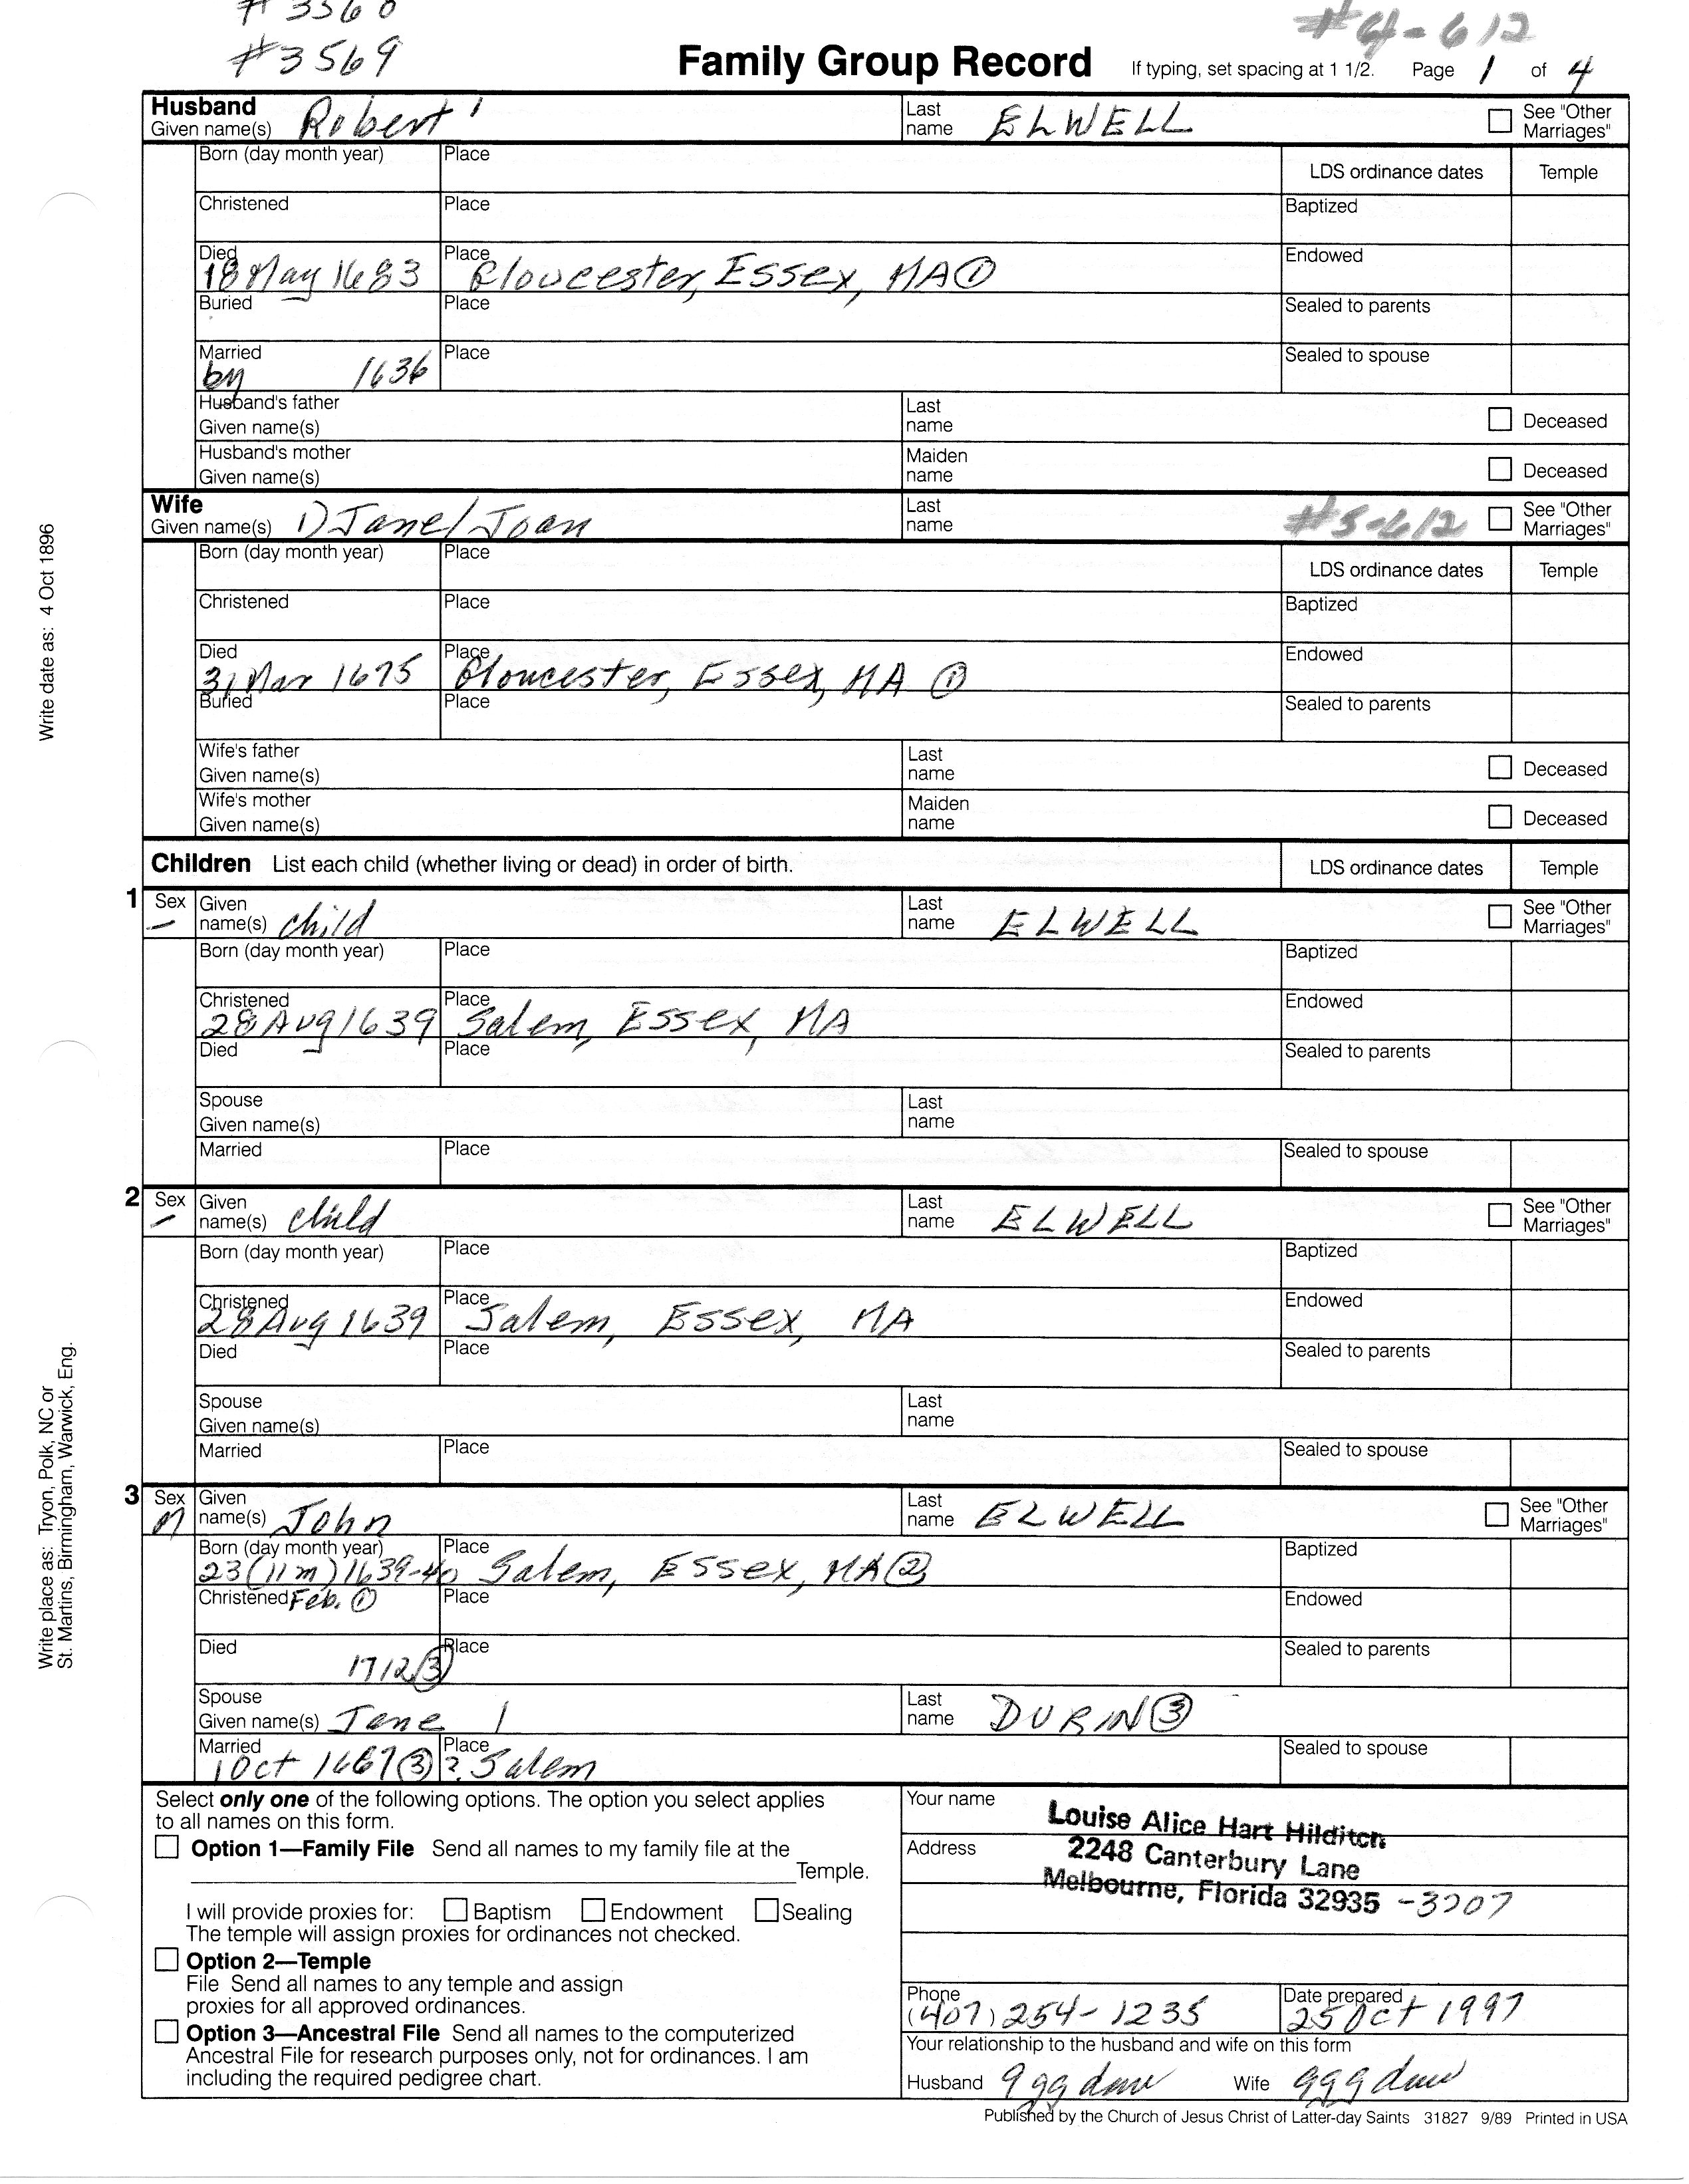 # 3560
#4-612
#3569
Family Group Record If typing, set spacing at 1 1/2. Page 1 of 4
Husband
Given name(s) Robert 1 Last name ELWELL See "Other Marriages"
Born (day month year) Place LDS ordinance dates Temple
Christened Place Baptized
Died 18 May 1683 Place Gloucester, Essex, MA ① Endowed
Buried Place Sealed to parents
Married by 1636 Place Sealed to spouse
Husband's father
Given name(s) Last name Deceased
Husband's mother
Given name(s) Maiden name Deceased
Wife
Given name(s) 1) Jane/Joan Last name #5-612 See "Other Marriages"
Born (day month year) Place LDS ordinance dates Temple
Christened Place Baptized
Died 31 Mar 1675 Place Gloucester, Essex, MA ① Endowed
Buried Place Sealed to parents
Wife's father
Given name(s) Last name Deceased
Wife's mother
Given name(s) Maiden name Deceased
Children List each child (whether living or dead) in order of birth. LDS ordinance dates Temple
1 Sex – Given name(s) child Last name ELWELL See "Other Marriages"
Born (day month year) Place Baptized
Christened 28 Aug 1639 Place Salem, Essex, MA Endowed
Died Place Sealed to parents
Spouse
Given name(s) Last name
Married Place Sealed to spouse
2 Sex – Given name(s) child Last name ELWELL See "Other Marriages"
Born (day month year) Place Baptized
Christened 28 Aug 1639 Place Salem, Essex, MA Endowed
Died Place Sealed to parents
Spouse
Given name(s) Last name
Married Place Sealed to spouse
3 Sex M Given name(s) John Last name ELWELL See "Other Marriages"
Born (day month year) 23 (11m) 1639-40 Place Salem, Essex, MA ② Baptized
Christened Feb. ① Place Endowed
Died 1712 ③ Place Sealed to parents
Spouse
Given name(s) Jane 1 Last name DURIN ③
Married 1 Oct 1667 ③ Place ? Salem Sealed to spouse
Select only one of the following options. The option you select applies
to all names on this form.
Option 1—Family File Send all names to my family file at the
Temple.
I will provide proxies for: Baptism Endowment Sealing
The temple will assign proxies for ordinances not checked.
Option 2—Temple
File Send all names to any temple and assign
proxies for all approved ordinances.
Option 3—Ancestral File Send all names to the computerized
Ancestral File for research purposes only, not for ordinances. I am
including the required pedigree chart.
Your name Louise Alice Hart Hilditch
Address 2248 Canterbury Lane
Melbourne, Florida 32935 -3207
Phone (407) 254-1235 Date prepared 25 Oct 1997
Your relationship to the husband and wife on this form
Husband 9 ggg dau Wife ggg dau
Published by the Church of Jesus Christ of Latter-day Saints 31827 9/89 Printed in USA
Write date as: 4 Oct 1896
Write place as: Tryon, Polk, NC or
St. Martins, Birmingham, Warwick, Eng.